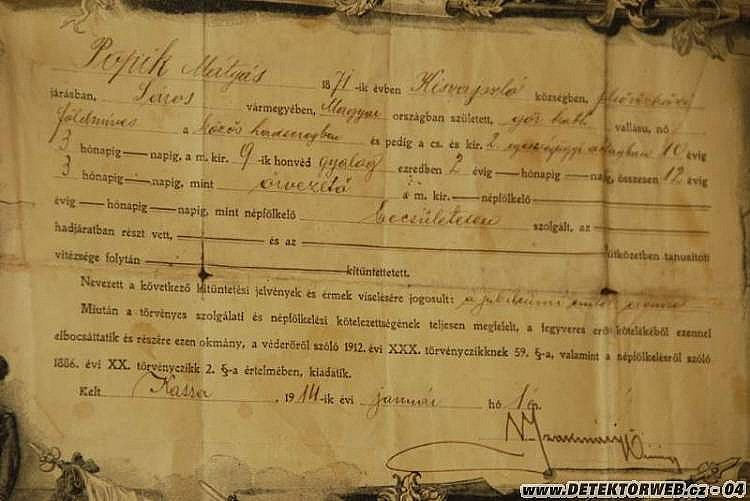 Popik Matyás 1871-ik évben Kisvajszló községben, felsővízközi
járásban, Sáros vármegyében, Magyar országban született, gör. kath. vallásu, nő
földmives a közös hadseregben és pedig a cs. és kir. 2. egészségügyi osztagban 10 évig
3 hónapig — napig, a m. kir. 9-ik honvéd gyalog ezredben 2 évig — hónapig — napig, összesen 12 évig
3 hónapig — napig, mint őrvezető a m. kir. — népfölkelő
évig — hónapig — napig, mint népfölkelő becsületesen szolgált, az
hadjáratban részt vett, és az ütközetben tanusított
vitézsége folytán kitüntettetett.
Nevezett a következő kitüntetési jelvények és érmek viselésére jogosult: a jubileumi
Miután a törvényes szolgálati és népfölkelési kötelezettségének teljesen megfelelt, a fegyveres erő kötelékéből ezennel
elbocsáttatik és részére ezen okmány, a véderőről szóló 1912. évi XXX. törvényczikknek 59. §-a, valamint a népfölkelésről szóló
1886. évi XX. törvényczikk 2. §-a értelmében, kiadatik.
Kelt Kassa, 1914-ik évi január hó 1én.
www.DETEKTORWEB.cz - 04